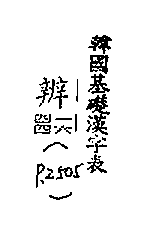 韓國基礎漢字表
辨
(P.2505)